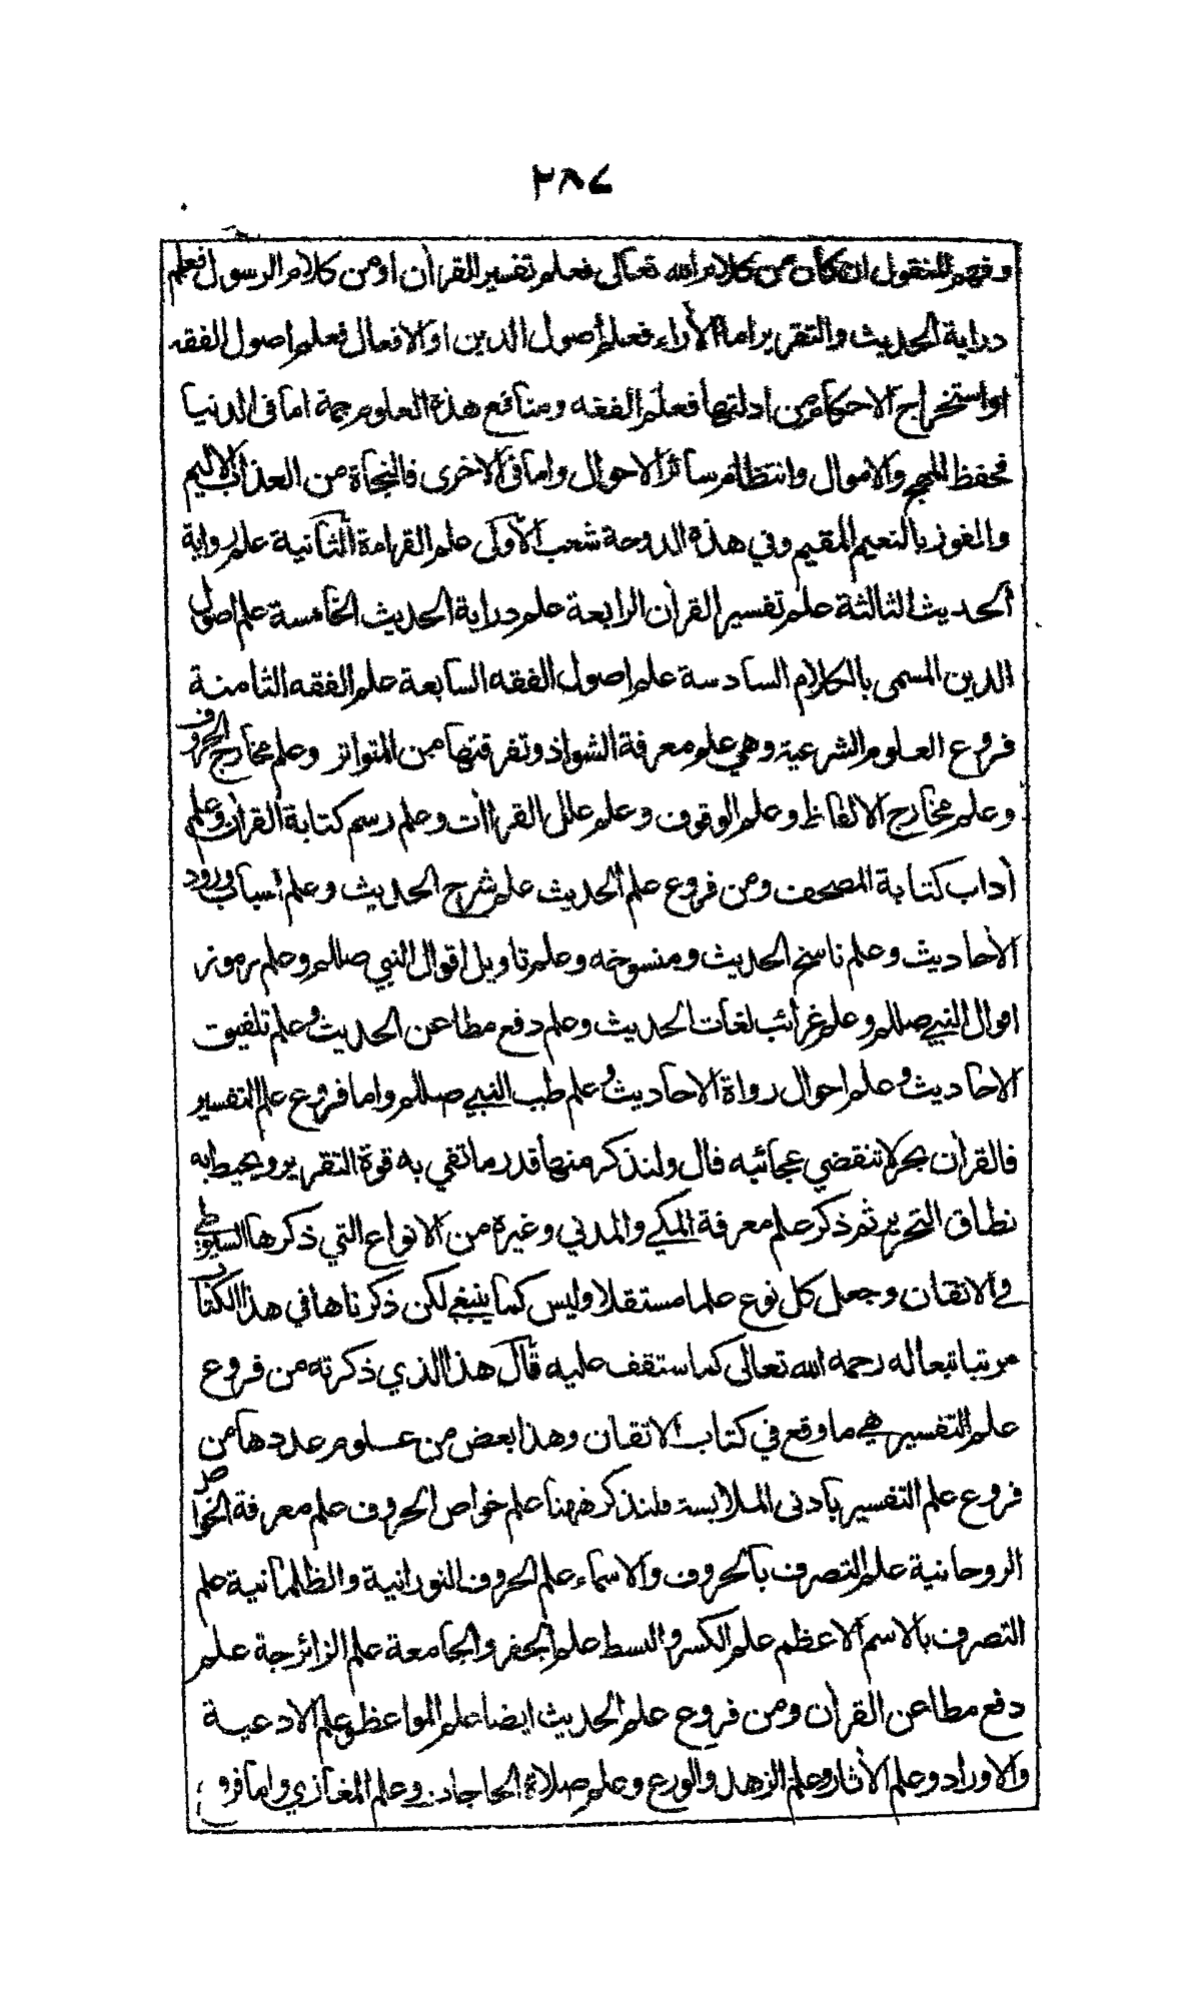 ٢٨٤
وفهم المنقول ان كان من كلام الله تعالى فعلم تفسير القرآن او من كلام الرسول فعلم
دراية الحديث والتقرير اما الآراء فعلم أصول الدين او الافعال فعلم اصول الفقه
او استخراج الاحكام من ادلتها فعلم الفقه ومنافع هذه العلوم جمة اما في الدنيا
فحفظ المهج والاموال وانتظام سائر الاحوال واما في الاخرى فالنجاة من العذاب الاليم
والفوز بالنعيم المقيم وفي هذه الدوحة شعب الأولى علم القراءة الثانية علم رواية
الحديث الثالثة علم تفسير القرآن الرابعة علم دراية الحديث الخامسة علم اصول
الدين المسمى بالكلام السادسة علم اصول الفقه السابعة علم الفقه الثامنة
فروع العلوم الشرعية وهي علم معرفة الشواذ وتفرقتها من المتواتر وعلم مخارج الحروف
وعلم مخارج الالفاظ وعلم الوقوف وعلم علل القراآت وعلم رسم كتابة القرآن وعلم
آداب كتابة المصحف ومن فروع علم الحديث علم شرح الحديث وعلم أسباب ورود
الأحاديث وعلم ناسخ الحديث ومنسوخه وعلم تاويل اقوال النبي صللم وعلم رموز
اقوال النبي صللم وعلم غرائب لغات الحديث وعلم دفع مطاعن الحديث وعلم تلفيق
الاحاديث وعلم احوال رواة الاحاديث وعلم طب النبي صللم واما فروع علم التفسير
فالقرآن بحر لا تنقضي عجائبه قال ولنذكر منها قدر ما تفي به قوة التقرير ويحيط به
نطاق التحرير ثم ذكر علم معرفة المكي والمدني وغيره من الانواع التي ذكرها السيوطي
في الاتقان وجعل كل نوع علما مستقلا وليس كما ينبغي لكن ذكرناها في هذا الكتاب
مرتبا تبعا له رحمه الله تعالى كما ستقف عليه قال هذا الذي ذكرته من فروع
علم التفسير هي ما وقع في كتاب الاتقان وهذا بعض من علوم عددها من
فروع علم التفسير بادنى الملابسة فلنذكر ههنا علم خواص الحروف علم معرفة الخواص
الروحانية علم التصرف بالحروف والاسماء علم الحروف النورانية والظلمانية علم
التصرف بالاسم الاعظم علم الكسر والبسط علم الجفر والجامعة علم الزائرجة علم
دفع مطاعن القرآن ومن فروع علم الحديث ايضا علم المواعظ وعلم الادعية
والاوراد وعلم الآثار وعلم الزهد والورع وعلم صلاة الحاجات وعلم المغازي واما فروع